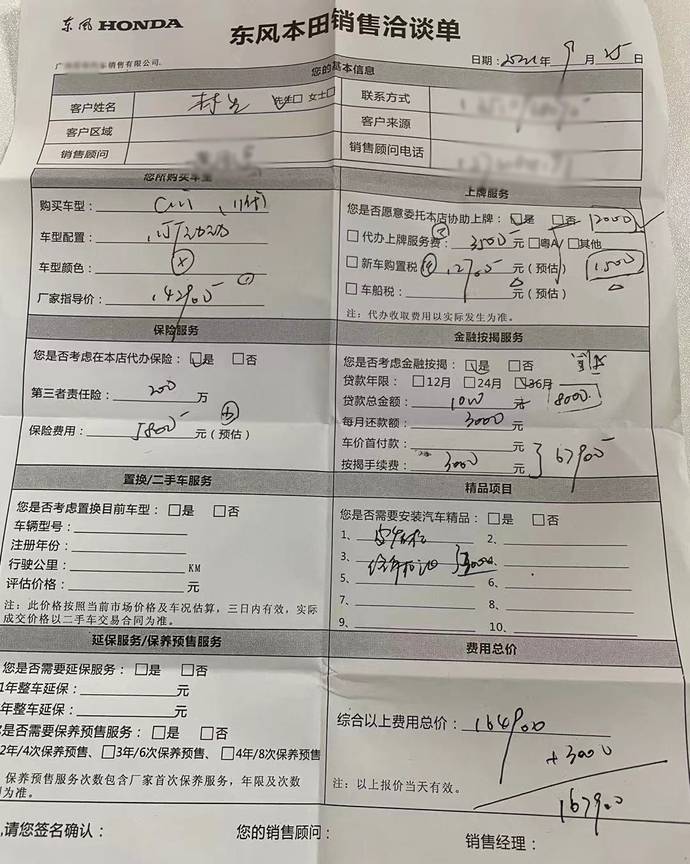 东风 HONDA
东风本田销售洽谈单
日期: 年 9 月 25 日
销售有限公司.
您的基本信息
客户姓名 先生□ 女士□ 联系方式
客户区域 客户来源
销售顾问 销售顾问电话
您所购买车型
购买车型:
车型配置:
车型颜色:
厂家指导价: 142900 ①
上牌服务
您是否愿意委托本店协助上牌: □是 □否 2000
□ 代办上牌服务费: ③ 3500 元 □粤A/□其他
□ 新车购置税 ④ 12700 元 (预估) 1500
□ 车船税: 元 (预估)
注: 代办收取费用以实际发生为准.
保险服务
您是否考虑在本店代办保险: □是 □否
第三者责任险: 200 万
保险费用: 5800 元 (预估)
金融按揭服务
您是否考虑金融按揭: □是 □否
贷款年限: □12月 □24月 □36月
贷款总金额: 元 8000
每月还款额: 3000 元
车价首付款: 元
按揭手续费: 3000 元 } 67900
置换/二手车服务
您是否考虑置换目前车型: □是 □否
车辆型号:
注册年份:
行驶公里: KM
评估价格: 元
注: 此价格按照当前市场价格及车况估算, 三日内有效, 实际
成交价格以二手车交易合同为准.
精品项目
您是否需要安装汽车精品: □是 □否
1、 2、
3、 3000 4、
5、 6、
7、 8、
9、 10、
延保服务/保养预售服务
您是否需要延保服务: □是 □否
1年整车延保: 元
年整车延保: 元
是否需要保养预售服务: □是 □否
2年/4次保养预售、□3年/6次保养预售、□4年/8次保养预售
保养预售服务次数包含厂家首次保养服务, 年限及次数
为准.
费用总价
综合以上费用总价: 164900
+3000
注: 以上报价当天有效.
167900
,请您签名确认: 您的销售顾问: 销售经理: